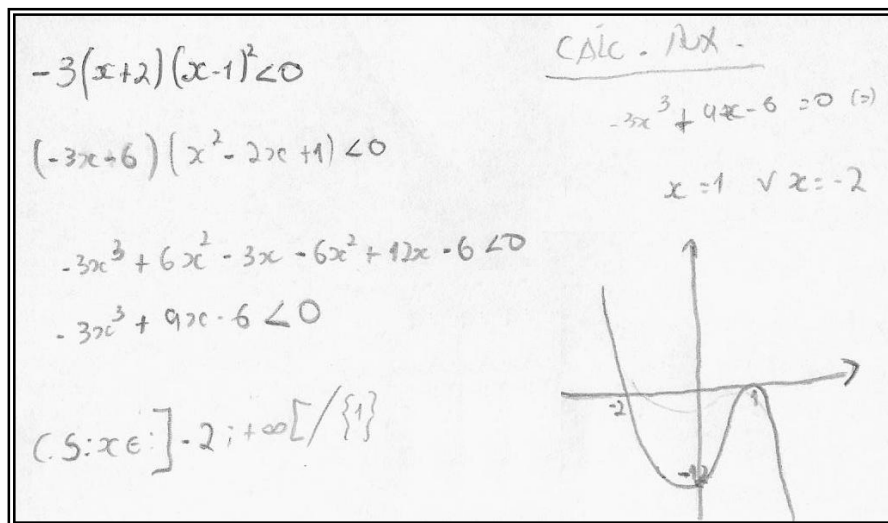 -3(x+2)(x-1)²<0
(-3x-6)(x²-2x+1)<0
-3x³+6x²-3x-6x²+12x-6<0
-3x³+9x-6<0
C.S:x∈:]-2;+∞[/{1}
CALC. AUX.
-3x³+9x-6=0 (=)
x=1 ∨ x=-2
-2
1
-12